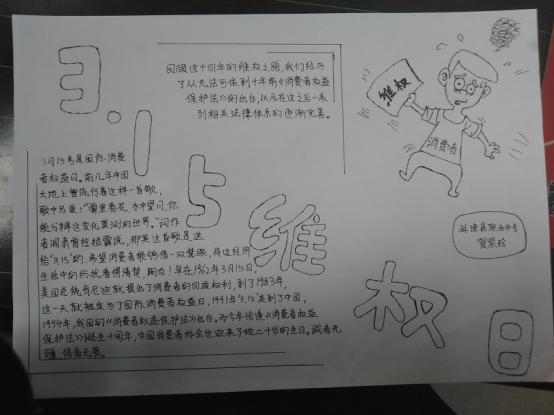 3.15维权日
回顾这十四年的维权之路,我们经历
了从无法可依到十年前《消费者权益
保护法》的出台,以及在这之后一系
列相关法律体系的逐渐完善。
维权
消费者
3月15号是国际消费
者权益日。前几年中国
大地上曾流行着这样一首歌,
歌中写道:"雾里看花,水中望月,你
能分辨这变幻莫测的世界。"词作
者阎肃曾经披露说,那英这首歌是送
给"3.15"的,希望消费者能借一双慧眼,将这经济
生活中的纷扰看得清楚,明白!早在1962年3月15日,
美国总统肯尼迪就提出了消费者的四项权利,到了1983年,
这一天就被定为了国际消费者权益日,1991年"3.15"走到了中国,
1994年,我国的《消费者权益保护法》出台。而今年恰逢《消费者权益
保护法》诞生十周年,中国消费者协会也迎来了她二十岁的生日。诚者无
疆,信者无界。
职业中专